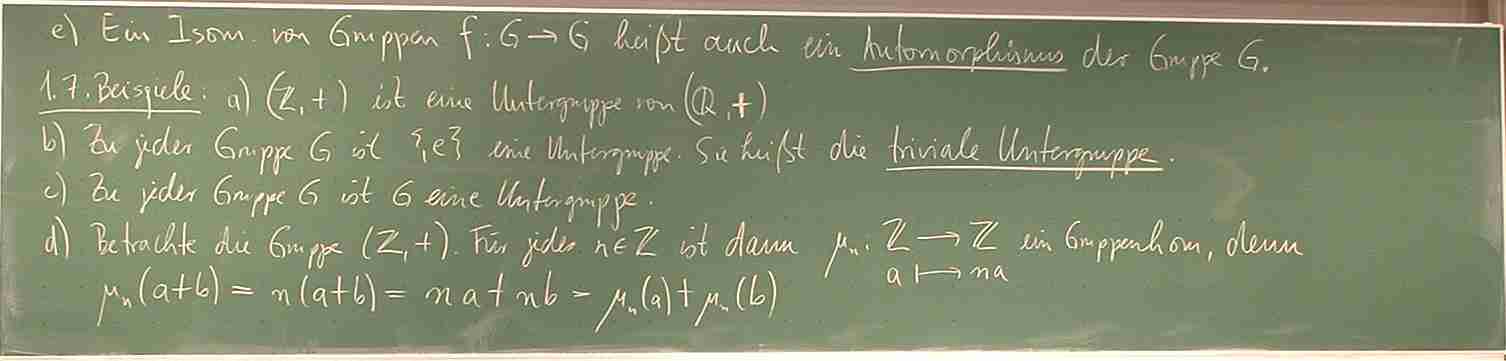 e) Ein Isom. von Gruppen f: G → G heißt auch ein Automorphismus der Gruppe G.
1.7. Beispiele: a) (ℤ, +) ist eine Untergruppe von (ℚ, +)
b) Zu jeder Gruppe G ist {e} eine Untergruppe. Sie heißt die triviale Untergruppe.
c) Zu jeder Gruppe G ist G eine Untergruppe.
d) Betrachte die Gruppe (ℤ, +). Für jedes n ∈ ℤ ist dann μₙ: ℤ → ℤ ein Gruppenhom, denn
a ↦ na
μₙ(a+b) = n(a+b) = na + nb = μₙ(a) + μₙ(b)